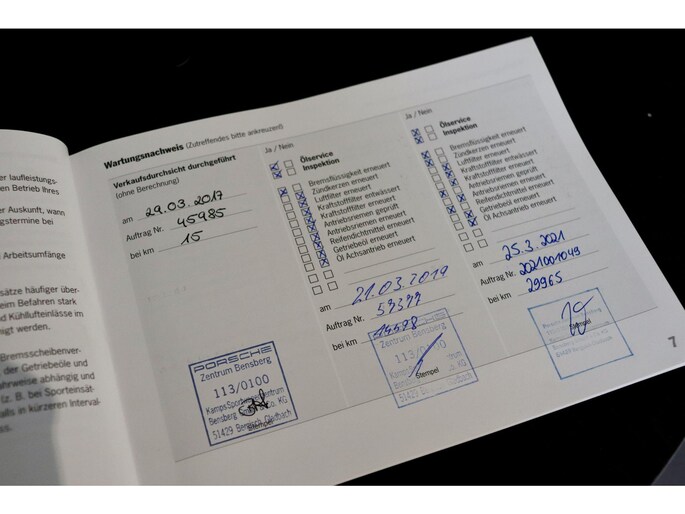 er laufleistungs-
en Betrieb Ihres
er Auskunft, wann
ngstermine bei
Arbeitsumfänge
sätze häufiger über-
eim Befahren stark
d Kühllufteinlässe im
nigt werden.
Bremsscheibenver-
der Getriebeöle und
ahrweise abhängig und
(z. B. bei Sporteinsät-
alls in kürzeren Interval-
ss.
Wartungsnachweis (Zutreffendes bitte ankreuzen!)
Verkaufsdurchsicht durchgeführt
(ohne Berechnung)
am 29.03.2017
Auftrag Nr. 45985
bei km 15
PORSCHE
Zentrum Bensberg
113/0100
51429 Bergisch Gladbach
Stempel
Ja / Nein
Ölservice
Inspektion
Bremsflüssigkeit erneuert
Zündkerzen erneuert
Luftfilter erneuert
Kraftstofffilter entwässert
Kraftstofffilter erneuert
Antriebsriemen geprüft
Antriebsriemen erneuert
Reifendichtmittel erneuert
Getriebeöl erneuert
Öl Achsantrieb erneuert
am 21.03.2019
Auftrag Nr.
bei km
Zentrum Bensberg
113/0100
Stempel
51429 Bergisch Gladbach
Ja / Nein
Ölservice
Inspektion
Bremsflüssigkeit erneuert
Zündkerzen erneuert
Luftfilter erneuert
Kraftstofffilter entwässert
Kraftstofffilter erneuert
Antriebsriemen geprüft
Antriebsriemen erneuert
Reifendichtmittel erneuert
Getriebeöl erneuert
Öl Achsantrieb erneuert
am 25.3.2021
Auftrag Nr. 2021001049
bei km 29965
Stempel
7